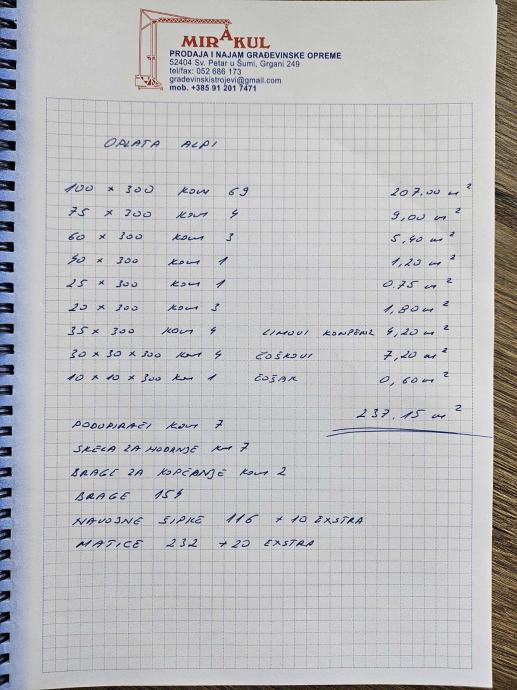 MIRAKUL
PRODAJA I NAJAM GRAĐEVINSKE OPREME
52404 Sv. Petar u Šumi, Grgani 249
tel/fax: 052 686 173
gradevinskistrojevi@gmail.com
mob. +385 91 201 7471
OPLATA ALPI
100 x 300 KOM 69 207.00 m²
75 x 300 KOM 4 9,00 m²
60 x 300 KOM 3 5,40 m²
40 x 300 KOM 1 1,20 m²
25 x 300 KOM 1 0.75 m²
20 x 300 KOM 3 1,80 m²
35 x 300 KOM 4 LIMOVI KOMPENZ 4,20 m²
30 x 30 x 300 KOM 4 ĆOŠKOVI 7,20 m²
10 x 10 x 300 KOM 1 ĆOŠAK 0,60 m²
237.15 m²
PODUPIRAČI KOM 7
SKELA ZA HODANJE KOM 7
BRAGE ZA KOPČANJE KOM 2
BRAGE 154
NAVOJNE ŠIPKE 116 + 10 EXSTRA
MATICE 232 + 20 EXSTRA